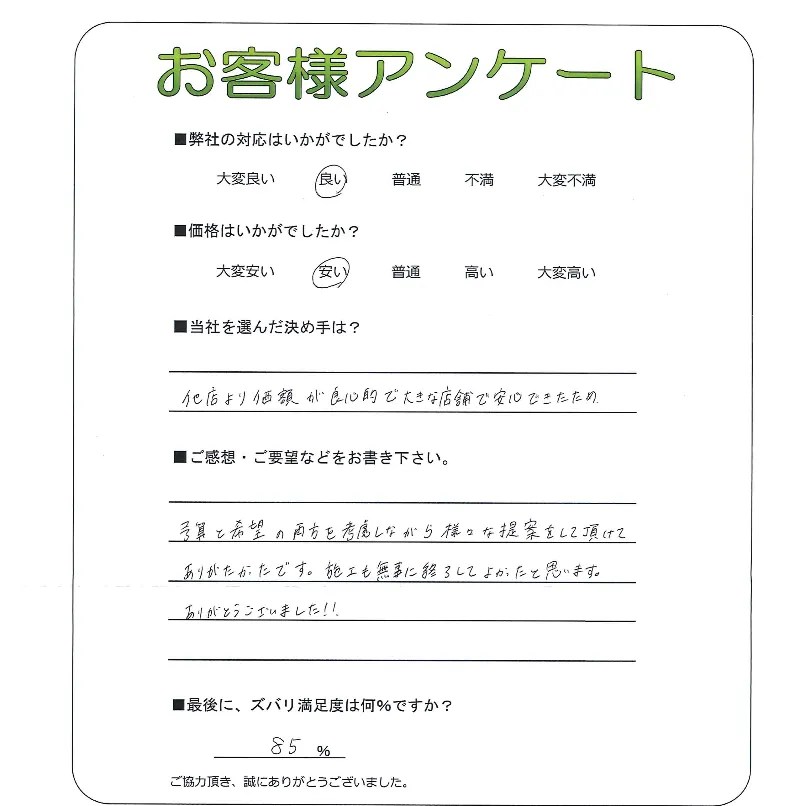 お客様アンケート
■弊社の対応はいかがでしたか？
大変良い 良い 普通 不満 大変不満
■価格はいかがでしたか？
大変安い 安い 普通 高い 大変高い
■当社を選んだ決め手は？
他店より価額が良心的で大きな店舗で安心できたため
■ご感想・ご要望などをお書き下さい。
予算と希望の両方を考慮しながら様々な提案をして頂けて
ありがたかたです。施工も無事に終了してよかったと思います。
ありがとうございました!!
■最後に、ズバリ満足度は何%ですか？
85 %
ご協力頂き、誠にありがとうございました。